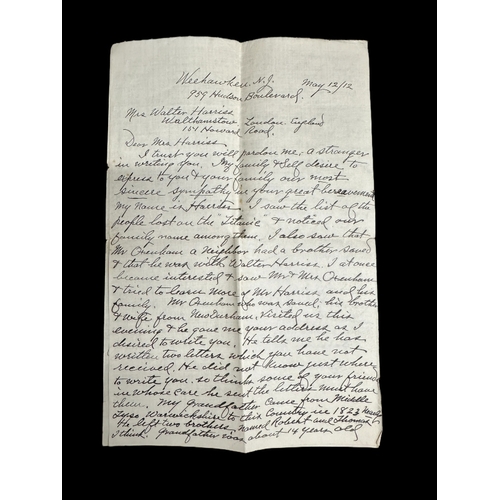 Weehawken N.J. May 12/12
959 Hudson Boulevard.
Mrs Walter Harriss
Walthamstow London England
151 Howard Road.
Dear Mrs Harriss:
I trust you will pardon me, a stranger
in writing you. My family & Self desire to
express to you & your family our most
Sincere sympathy in your great bereavement
my Name is Harriss. I saw the list of the
people lost on the "Titanic" & noticed our
family name among them. I also saw that
Mr Oxenham a Neighbor had a brother saved
& that he was with Walter Harriss. I at once
became interested & saw Mr & Mrs Oxenham
& tried to learn more of Mr Harriss and his
family. Mr Oxenham who was saved, his brother
& wife from New Durham, visited us this
evening & he gave me your address as I
desired to write you. He tells me he has
written two letters which you have not
received. He did not know just where
to write you. so thinks some of your friends
in whose care he sent the letters must have
them. My Grandfather came from Middle
Tyso Warwickshire to this Country in 1823
He left two brothers, named Robert and Thomas
I think. Grandfather was about 14 years old